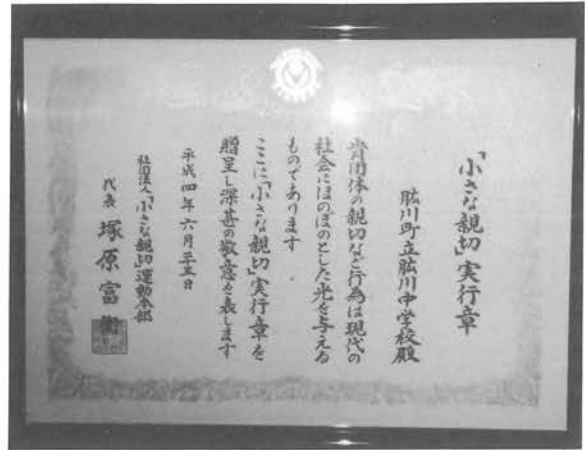 「小さな親切」実行章
肱川町立肱川中学校殿
貴団体の親切なご行為は現代の
社会にほのぼのとした光を与える
ものであります
ここに「小さな親切」実行章を
贈呈し深甚の敬意を表します
平成四年六月二十五日
社団法人「小さな親切」運動本部
代表 塚原富衛